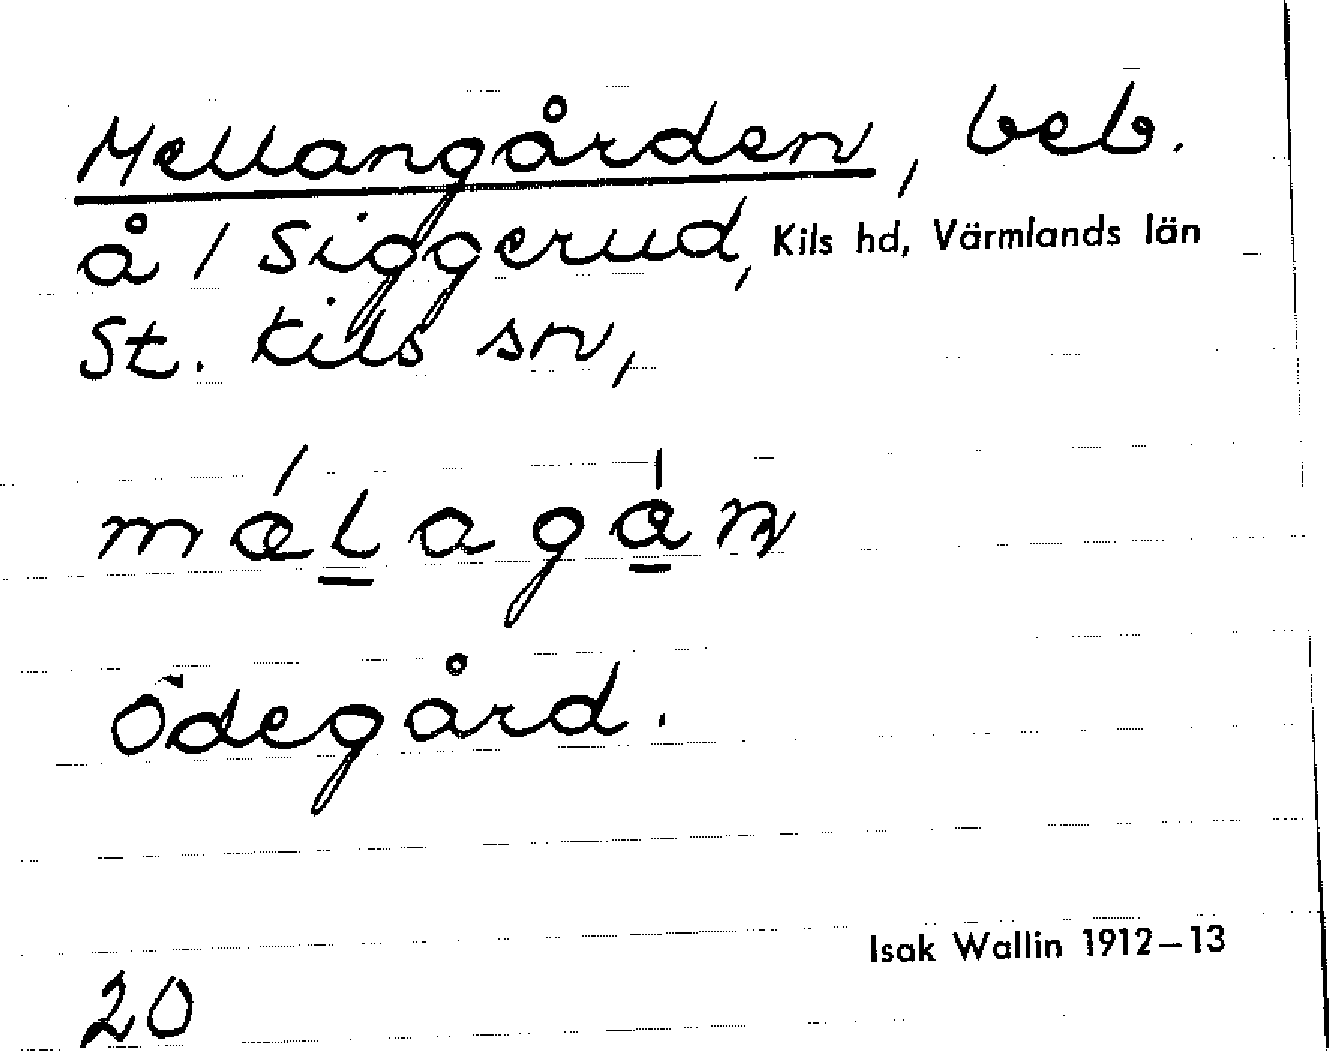 Mellangården, beb.
å / Siggerud, Kils hd, Värmlands län
St. Kils sn,
Ödegård.
Isak Wallin 1912–13
20